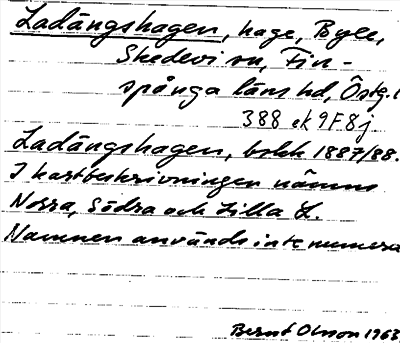 Ladängshagen, hage, Byle,
Skedevi sn, Fin-
spånga läns hd, Östg. l
388 ek 9F8j
Ladängshagen, beskr 1887/88.
I kartbeskrivningen nämns
Norra, Södra och Lilla L.
Namnen används inte numera
Bernt Olsson 1963